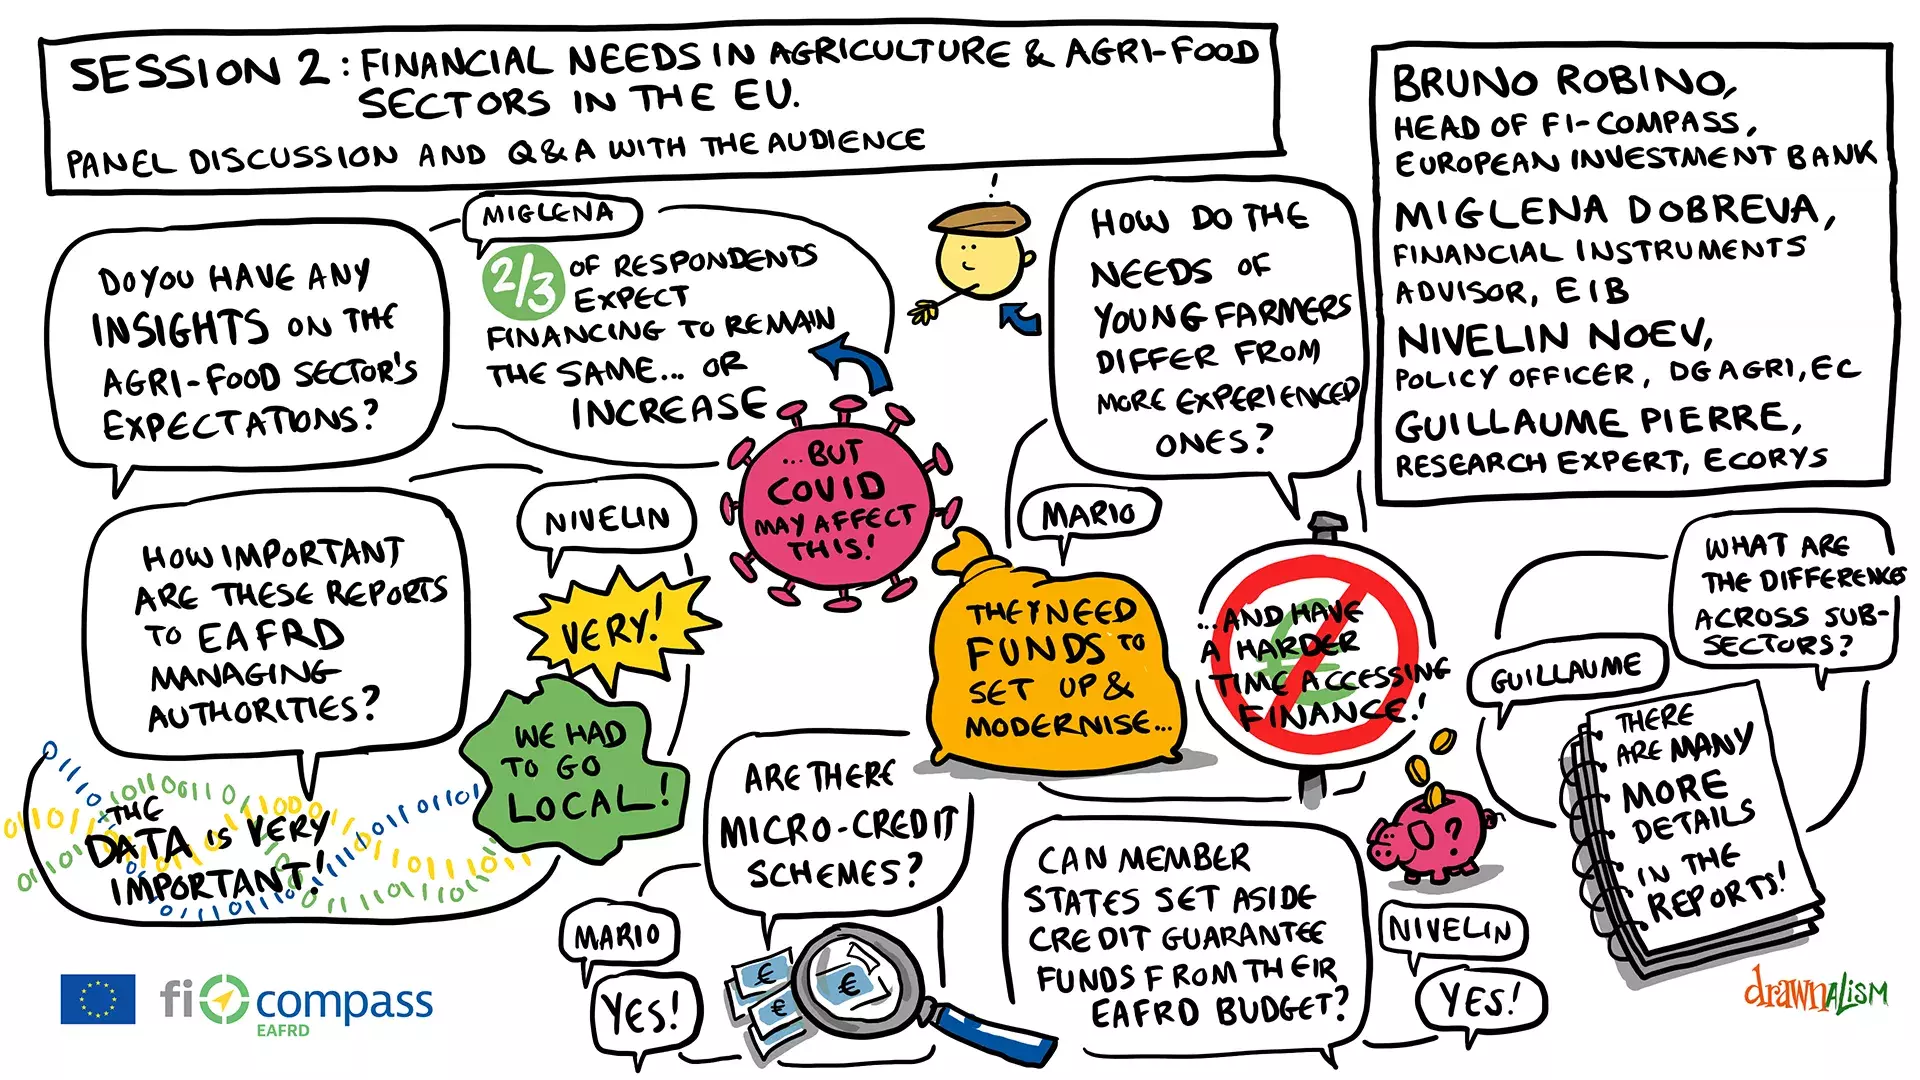 SESSION 2: FINANCIAL NEEDS IN AGRICULTURE & AGRI-FOOD
SECTORS IN THE EU.
PANEL DISCUSSION AND Q&A WITH THE AUDIENCE
BRUNO ROBINO,
HEAD OF FI-COMPASS,
EUROPEAN INVESTMENT BANK
MIGLENA DOBREVA,
FINANCIAL INSTRUMENTS
ADVISOR, EIB
NIVELIN NOEV,
POLICY OFFICER, DG AGRI, EC
GUILLAUME PIERRE,
RESEARCH EXPERT, ECORYS
DO YOU HAVE ANY
INSIGHTS ON THE
AGRI-FOOD SECTOR'S
EXPECTATIONS?
MIGLENA
2/3 OF RESPONDENTS
EXPECT
FINANCING TO REMAIN
THE SAME... OR
INCREASE
...BUT
COVID
MAY AFFECT
THIS!
HOW DO THE
NEEDS OF
YOUNG FARMERS
DIFFER FROM
MORE EXPERIENCED
ONES?
MARIO
THEY NEED
FUNDS TO
SET UP &
MODERNISE...
...AND HAVE
A HARDER
TIME ACCESSING
FINANCE!
€
HOW IMPORTANT
ARE THESE REPORTS
TO EAFRD
MANAGING
AUTHORITIES?
NIVELIN
VERY!
WE HAD
TO GO
LOCAL!
THE
DATA IS VERY
IMPORTANT!
WHAT ARE
THE DIFFERENCES
ACROSS SUB-
SECTORS?
GUILLAUME
THERE
ARE MANY
MORE
DETAILS
IN THE
REPORTS!
ARE THERE
MICRO-CREDIT
SCHEMES?
MARIO
YES!
€
€
€
CAN MEMBER
STATES SET ASIDE
CREDIT GUARANTEE
FUNDS FROM THEIR
EAFRD BUDGET?
?
NIVELIN
YES!
fi compass
EAFRD
drawnalism